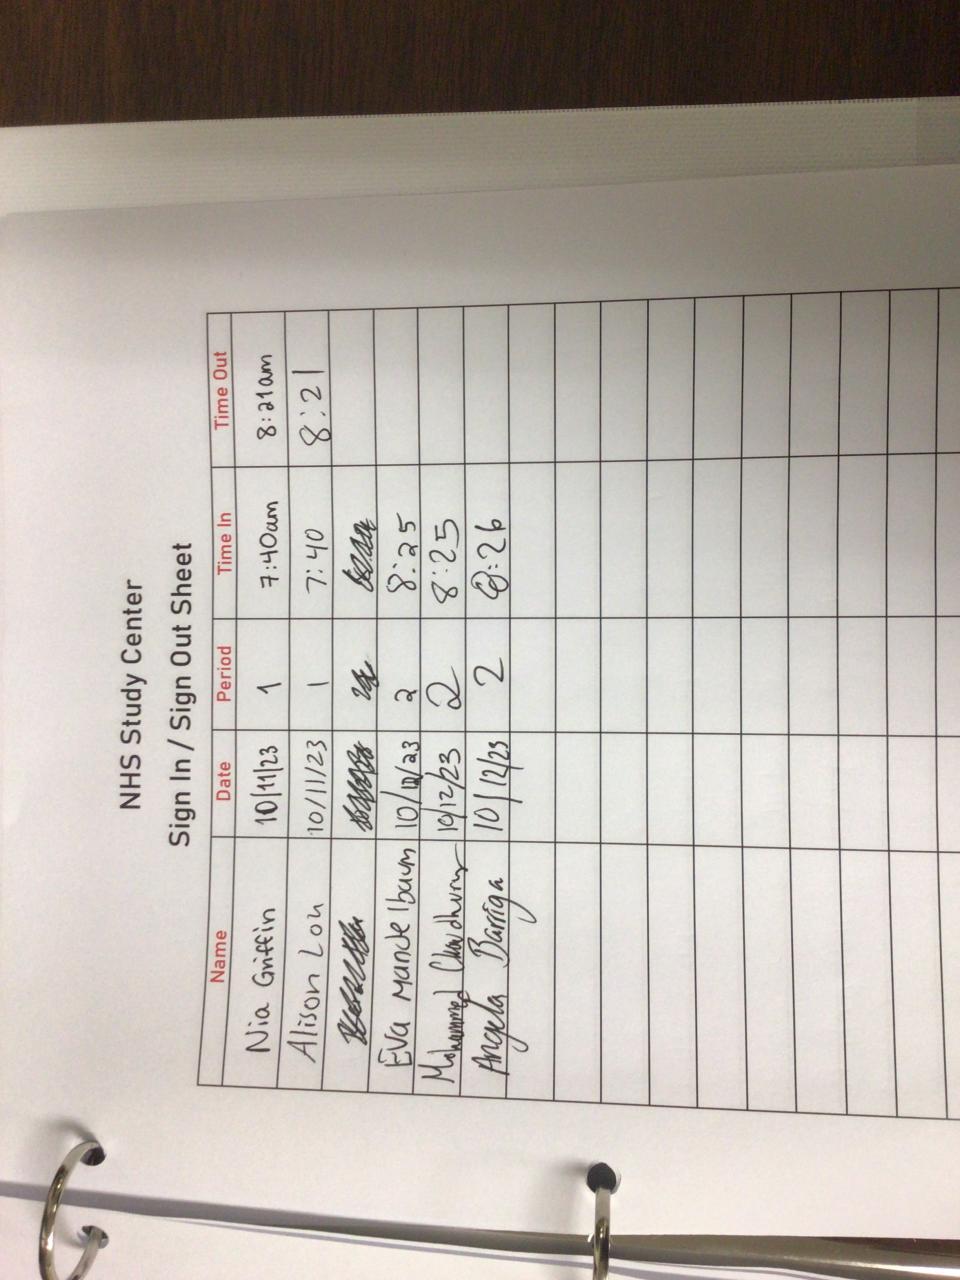 NHS Study Center
Sign In / Sign Out Sheet
Name Date Period Time In Time Out
Nia Griffin 10/11/23 1 7:40am 8:21am
Alison Lou 10/11/23 1 7:40 8:21
Eva Mandelbaum 10/12/23 2 8:25
Mohammed Chowdhury 10/12/23 2 8:25
Angela Barriga 10/12/23 2 8:26